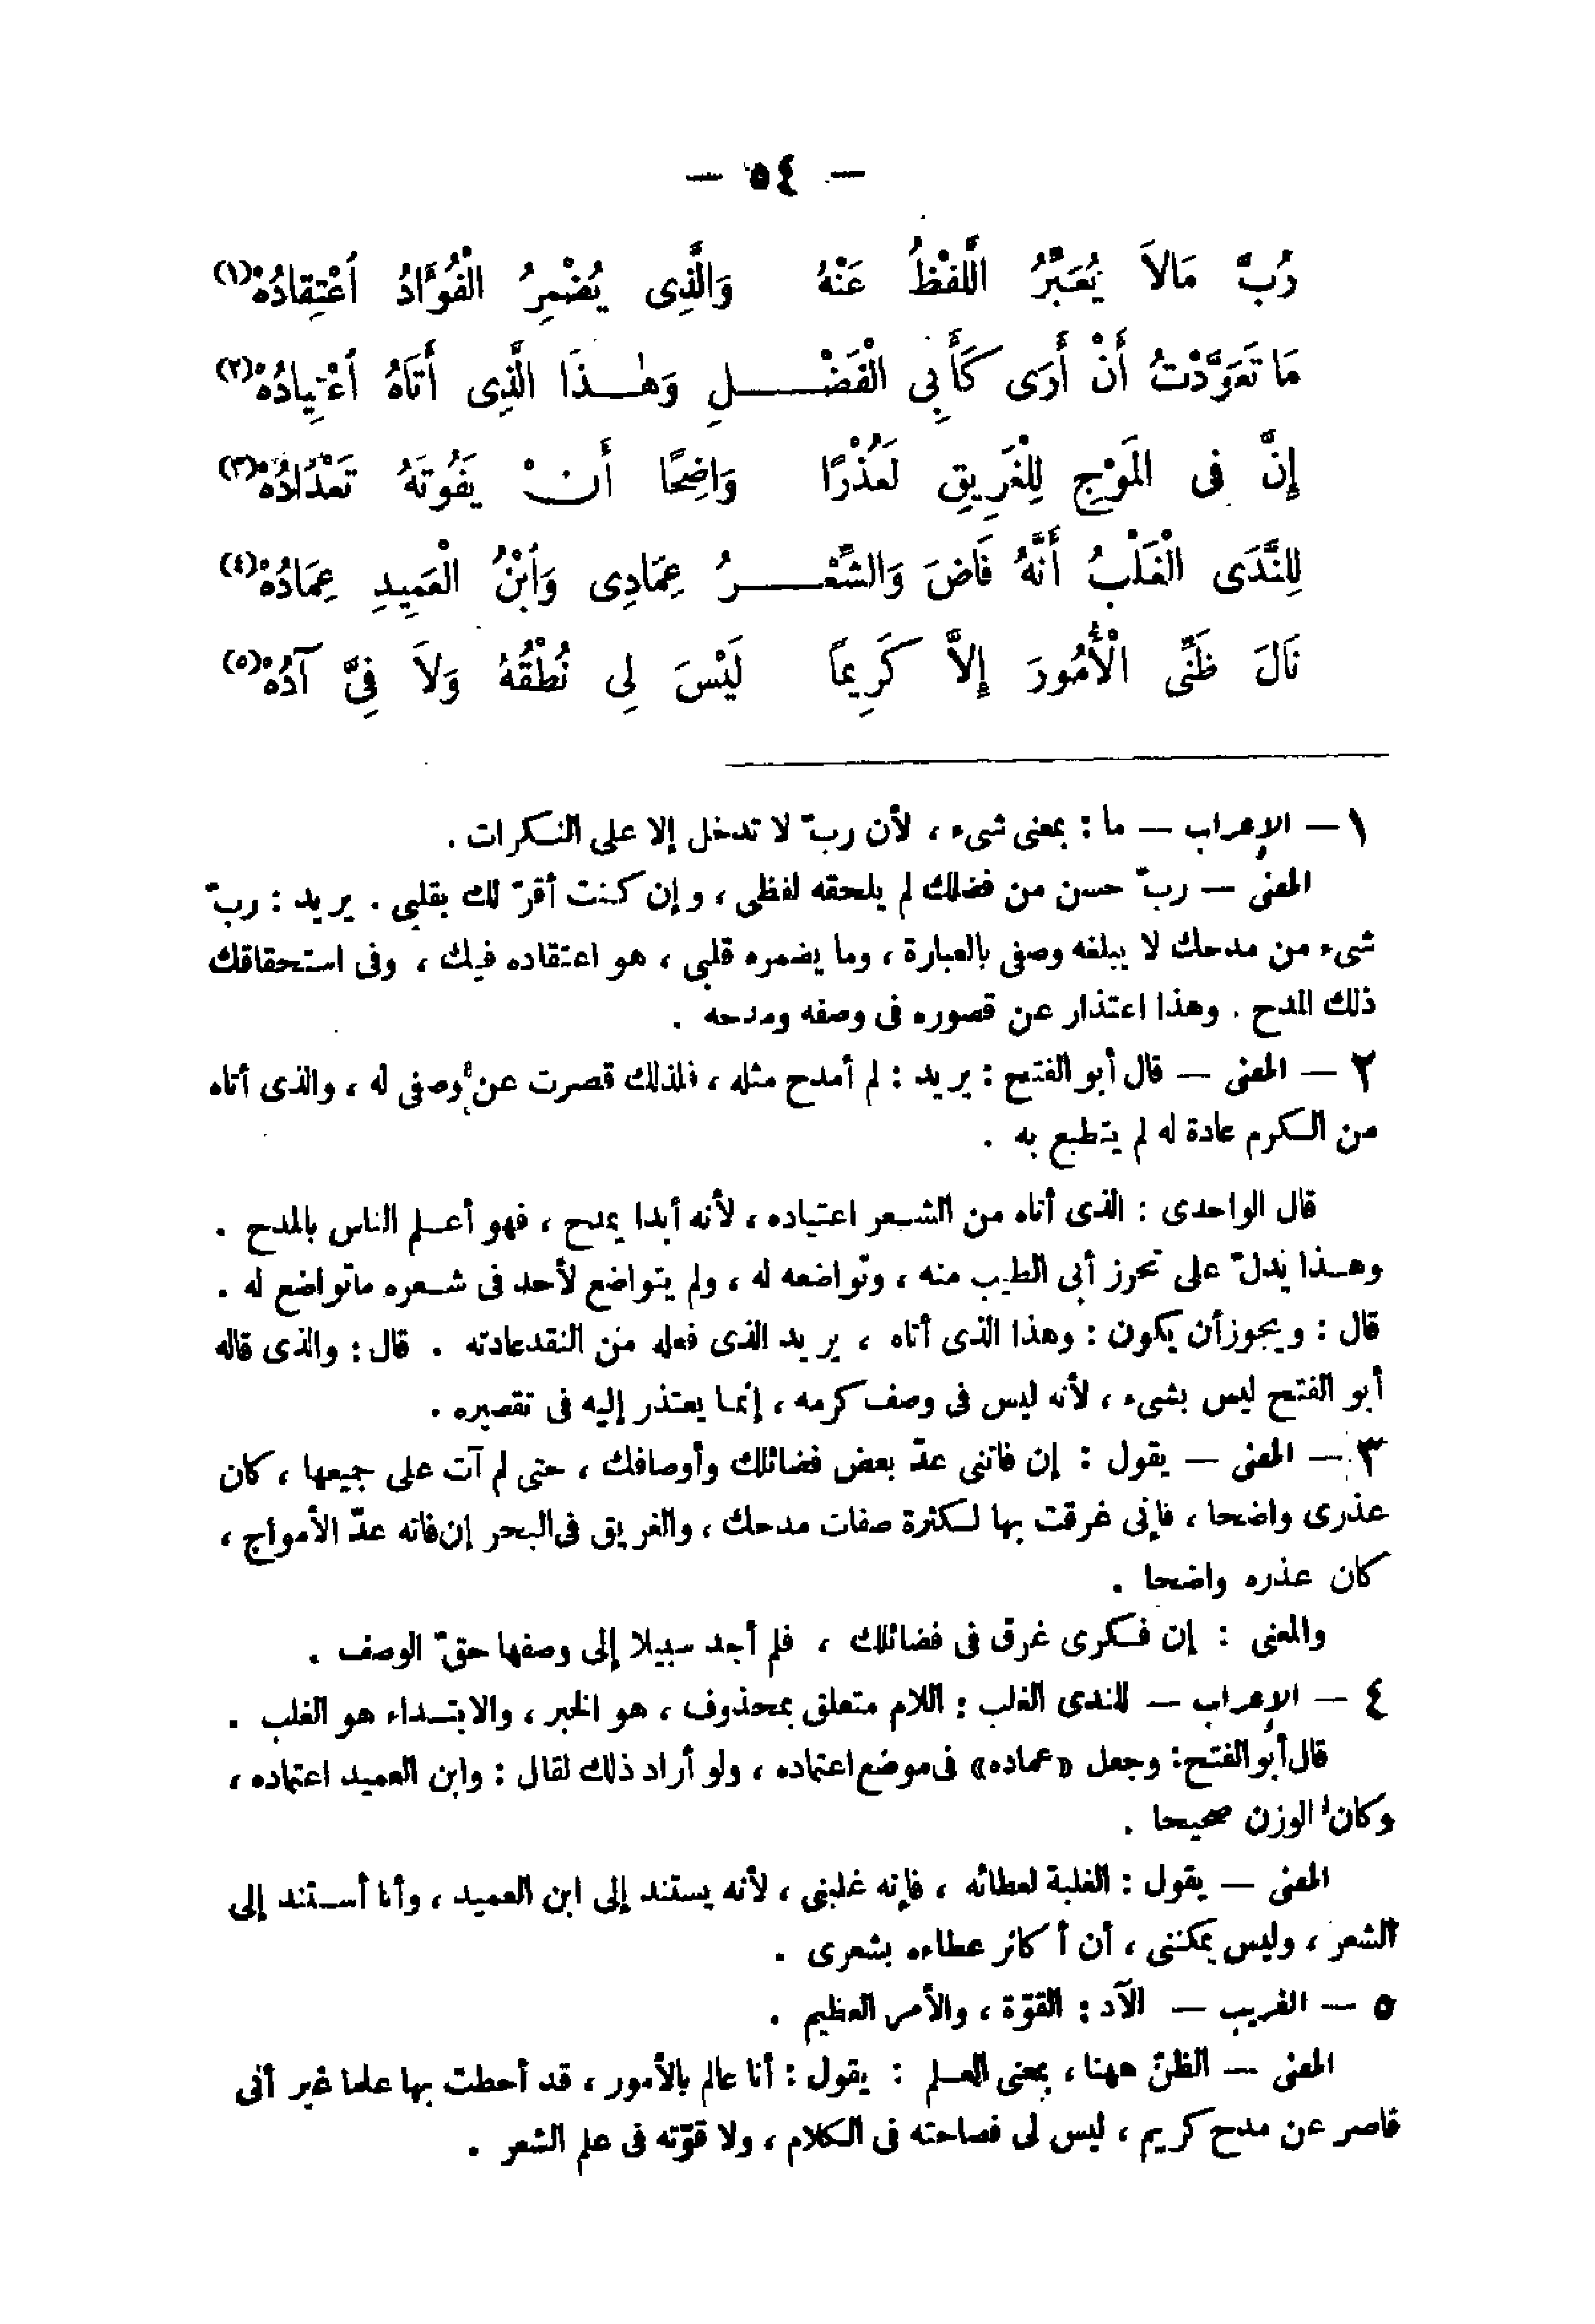 — ٥٤ —
رُبَّ مَالاَ يُعَبِّرُ اللَّفْظُ عَنْهُ وَالَّذِى يُضْمِرُ الْفُؤَادُ اُعْتِقادُهْ(١)
مَا تَعَوَّدْتُ أَنْ أَرَى كَأَبِى الْفَضْـــلِ وَهٰـذَا الَّذِى أَتَاهُ اُعْتِيادُهْ(٢)
إِنَّ فِى المَوْجِ لِلْغَرِيقِ لَعُذْرًا وَاضِحًا أَنْ يَفُوتَهُ تَعْدَادُهْ(٣)
لِلنَّدَى الْغَلْبُ أَنَّهُ فَاضَ وَالشِّعْـــرُ عِمَادِى وَاُبْنُ الْعَمِيدِ عِمَادُهْ(٤)
نَالَ ظَنِّى الْأُمُورَ إِلاَّ كَرِيمًا لَيْسَ لِى نُطْقُهُ وَلاَ فِىَّ آدُهْ(٥)
١ — الإعراب — ما : بمعنى شىء ، لأن ربّ لا تدخل إلا على النـكرات .
المعنى — ربّ حسن من فضلك لم يلحقه لفظى ، وإن كـنت أقرّ لك بقلبى . يريد : ربّ
شىء من مدحك لا يبلغه وصفى بالعبارة ، وما يضمره قلبى ، هو اعتقاده فيك ، وفى استحقاقك
ذلك المدح . وهذا اعتذار عن قصوره فى وصفه ومدحه .
٢ — المعنى — قال أبو الفتح : يريد : لم أمدح مثله ، فلذلك قصرت عن وصفى له ، والذى أتاه
من الـكرم عادة له لم يتطبع به .
قال الواحدى : الذى أتاه من الشـعر اعتياده ، لأنه أبدا يمدح ، فهو أعـلم الناس بالمدح .
وهـذا يدلّ على تحرز أبى الطيب منه ، وتواضعه له ، ولم يتواضع لأحد فى شـعره ماتواضع له .
قال : ويجوزأن يكون : وهذا الذى أتاه ، يريد الذى فعله من النقدعادته . قال : والذى قاله
أبو الفتح ليس بشىء ، لأنه ليس فى وصف كرمه ، إنما يعتذر إليه فى تقصيره .
٣ — المعنى — يقول : إن فاتنى عدّ بعض فضائلك وأوصافك ، حتى لم آت على جميعها ، كان
عذرى واضحا ، فإنى غرقت بها لـكثرة صفات مدحك ، والغريق فى البحر إن فاته عدّ الأمواج ،
كان عذره واضحا .
والمعنى : إن فـكرى غرق فى فضائلك ، فلم أجد سبيلا إلى وصفها حقّ الوصف .
٤ — الإعراب — للندى الغلب : اللام متعلق بمحذوف ، هو الخبر ، والابتـداء هو الغلب .
قال أبو الفتح : وجعل «عماده» فى موضع اعتماده ، ولو أراد ذلك لقال : وابن العميد اعتماده ،
وكان الوزن صحيحا .
المعنى — يقول : الغلبة لعطائه ، فإنه غلبنى ، لأنه يستند إلى ابن العميد ، وأنا أسـتند إلى
الشعر ، وليس يمكننى ، أن أكاثر عطاءه بشعرى .
٥ — الغريب — الآد : القوّة ، والأمر العظيم .
المعنى — الظنّ ههنا ، بمعنى العـلم : يقول : أنا عالم بالأمور ، قد أحطت بها علما غير أنى
قاصر عن مدح كريم ، ليس لى فصاحته فى الـكلام ، ولا قوّته فى علم الشعر .